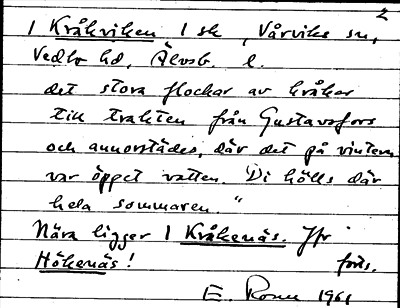 2
I Kråkviken 1 sk, Vårviks sn,
Vedbo hd, Älvsb. l.
det stora flockar av kråkor
till trakten från Gustavsfors
och annorstädes, där det på vintern
var öppet vatten. Di hölls där
hela sommaren."
Nära ligger I Kråkenäs. Jfr
Hökenäs! forts.
E. 1961